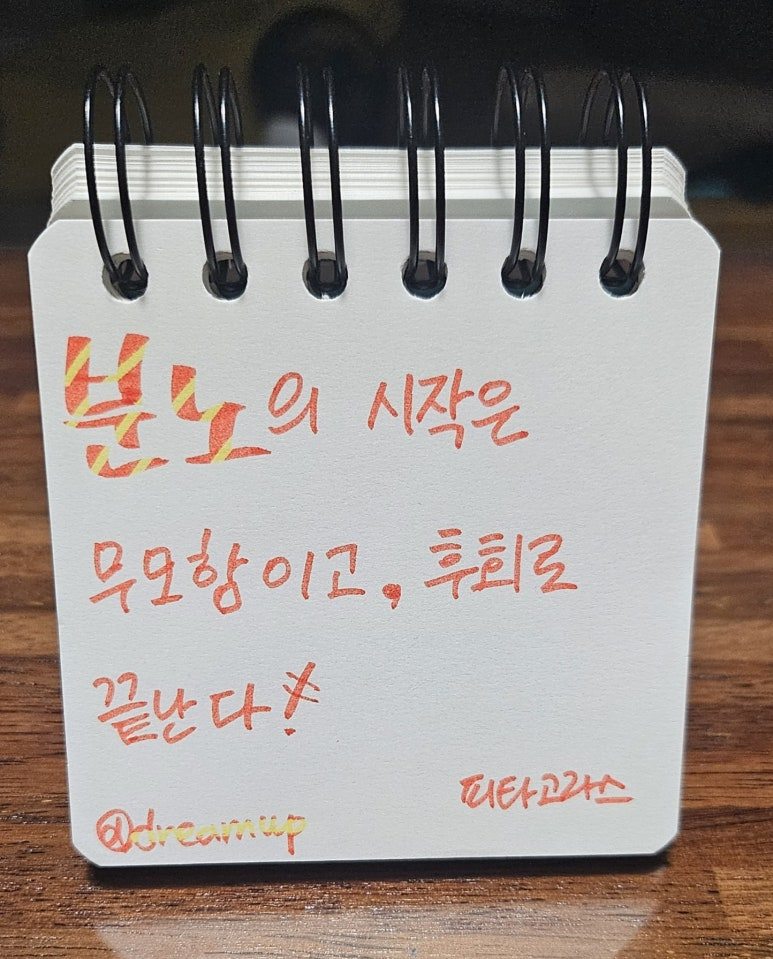 분노의 시작은
무모함이고, 후회로
끝난다!
피타고라스
@dreamup